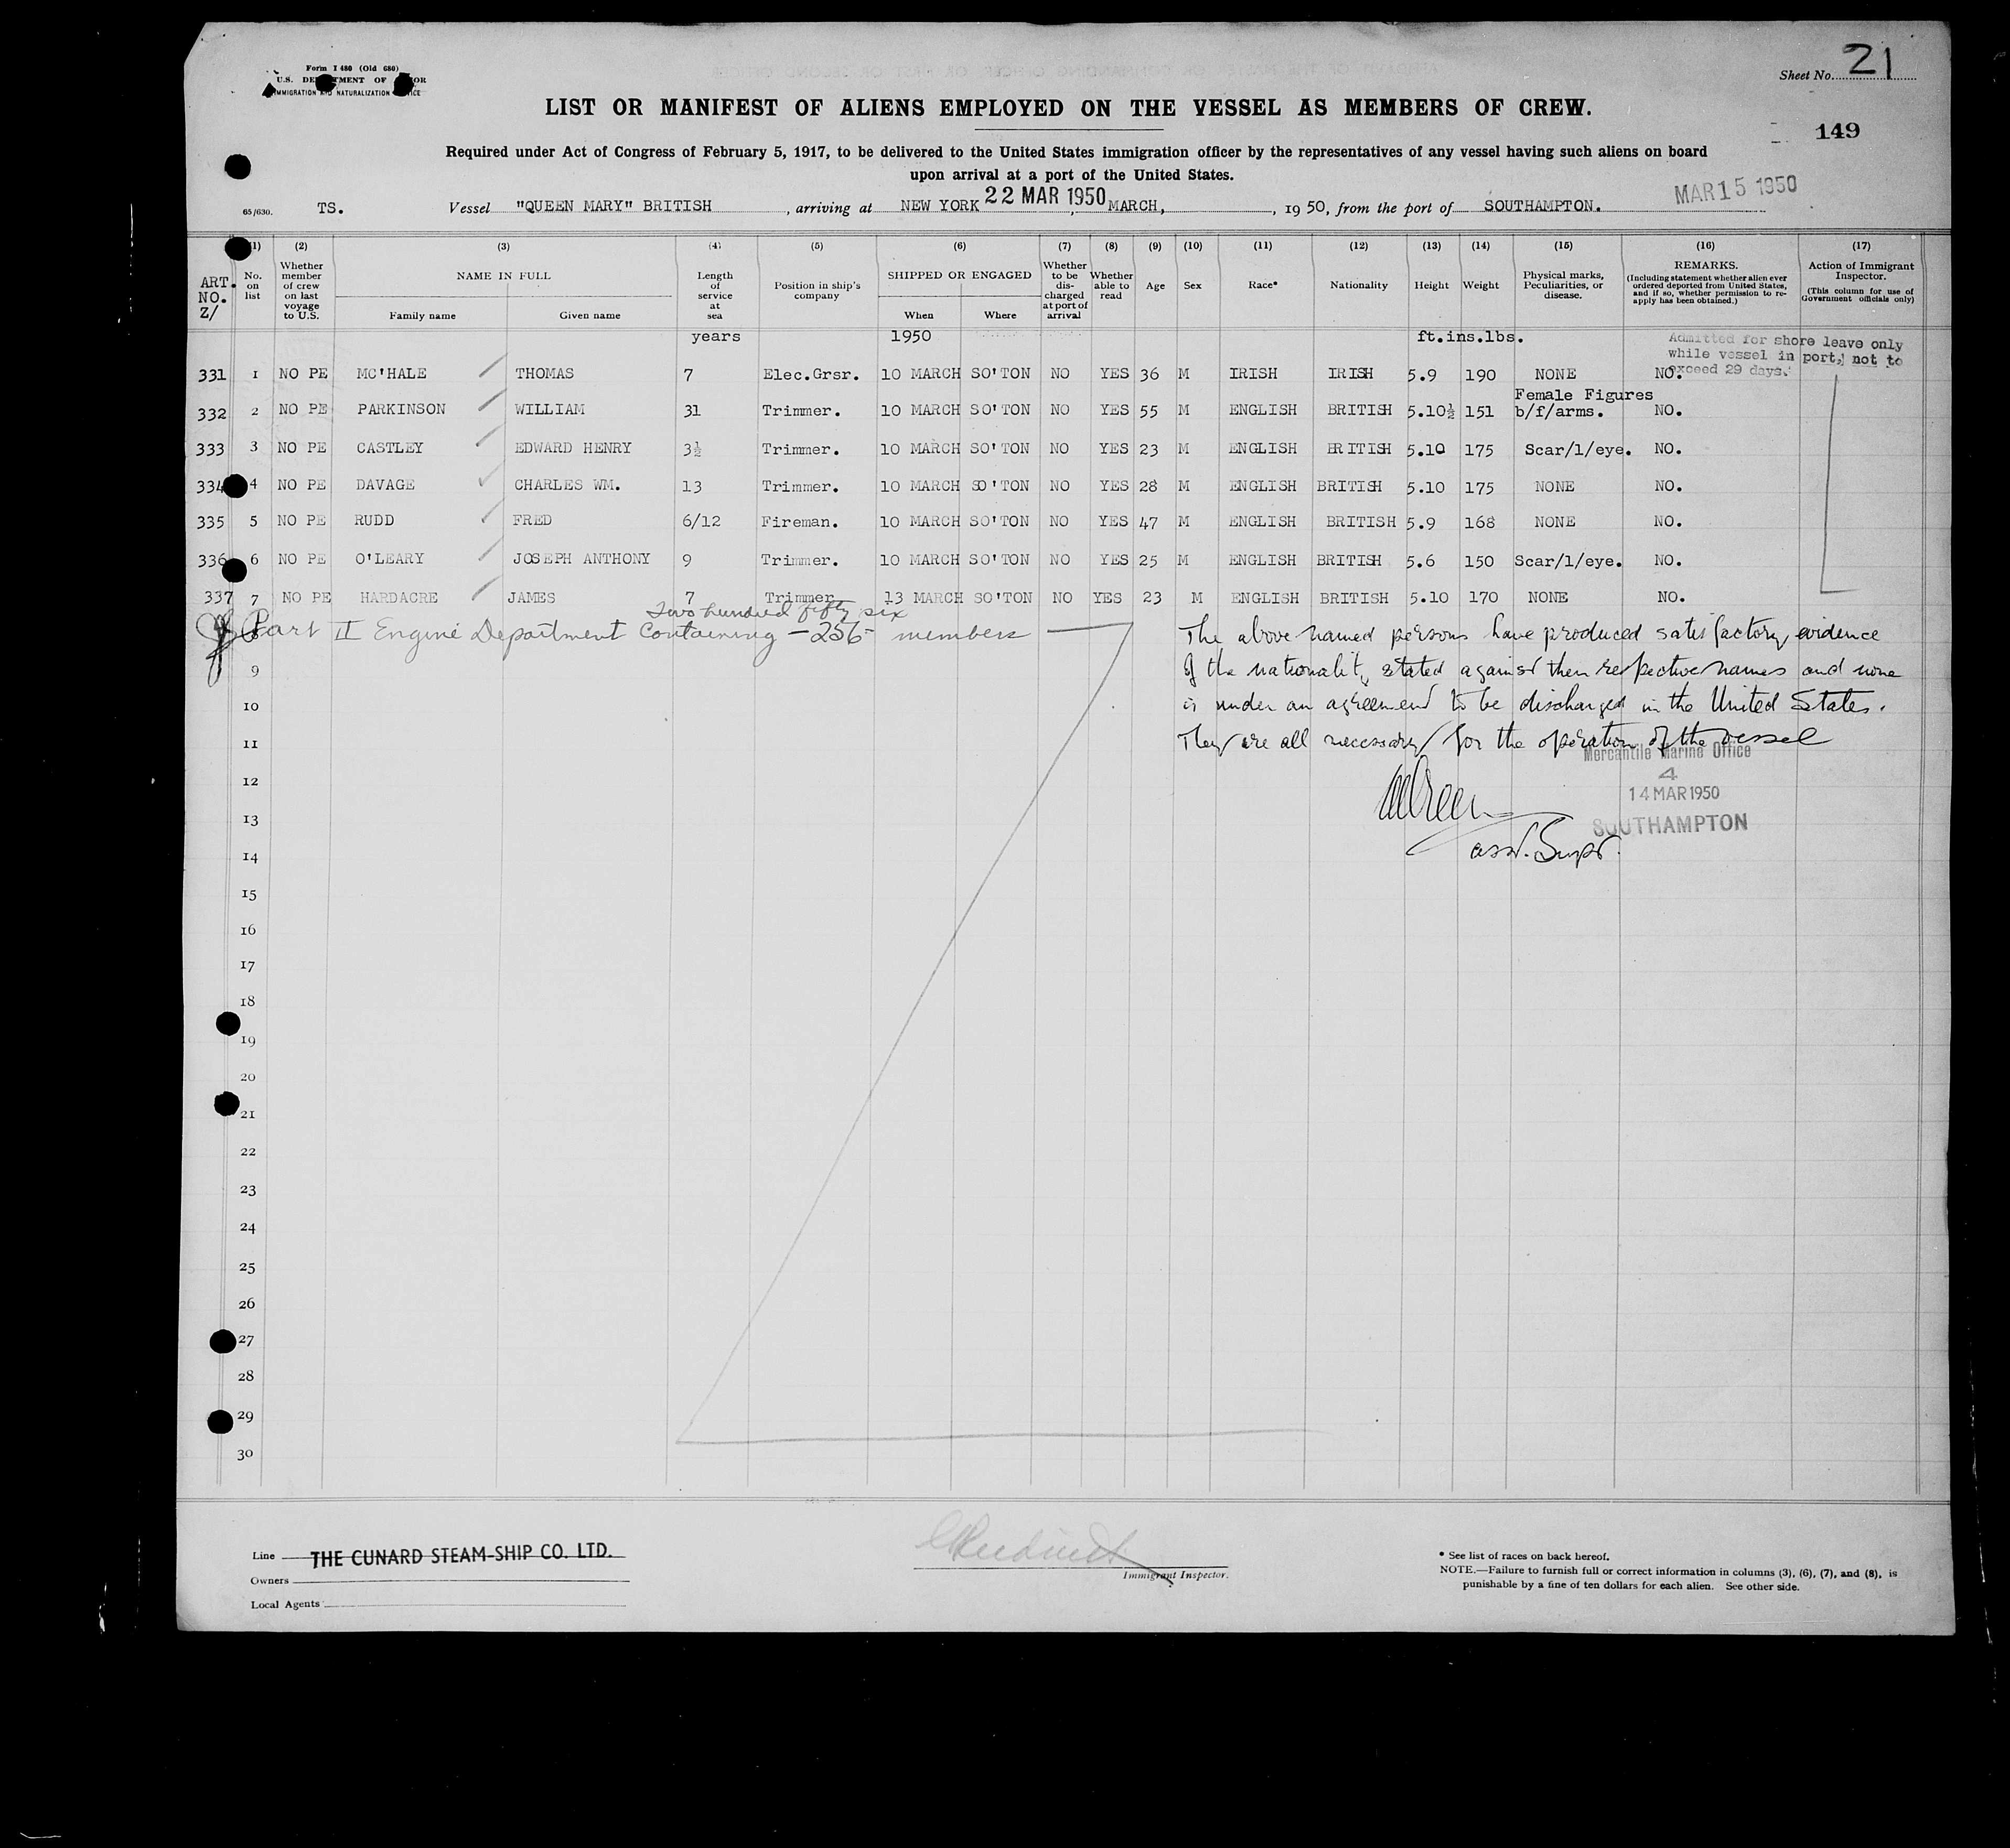 Form I 480 (Old 680)
U.S. DE TMENT OF OR
IMMIGRATION AND NATURALIZATION ICE
Sheet No. 21
LIST OR MANIFEST OF ALIENS EMPLOYED ON THE VESSEL AS MEMBERS OF CREW.
149
Required under Act of Congress of February 5, 1917, to be delivered to the United States immigration officer by the representatives of any vessel having such aliens on board
upon arrival at a port of the United States.
65/630. TS. Vessel "QUEEN MARY" BRITISH, arriving at NEW YORK 22 MAR 1950, MARCH, 1950, from the port of SOUTHAMPTON. MAR 15 1950
(1) (2) (3) (4) (5) (6) (7) (8) (9) (10) (11) (12) (13) (14) (15) (16) (17)
ART. NO. Z/ No. on list Whether member of crew on last voyage to U.S. NAME IN FULL Family name Given name Length of service at sea Position in ship's company SHIPPED OR ENGAGED When Where Whether to be dis-charged at port of arrival Whether able to read Age Sex Race* Nationality Height Weight Physical marks, Peculiarities, or disease. REMARKS. (Including statement whether alien ever ordered deported from United States, and if so, whether permission to re-apply has been obtained.) Action of Immigrant Inspector. (This column for use of Government officials only)
years 1950 ft.ins.lbs.
Admitted for shore leave only
while vessel in port, not to
exceed 29 days.
331 1 NO PE MC'HALE THOMAS 7 Elec.Grsr. 10 MARCH SO'TON NO YES 36 M IRISH IRISH 5.9 190 NONE NO.
332 2 NO PE PARKINSON WILLIAM 31 Trimmer. 10 MARCH SO'TON NO YES 55 M ENGLISH BRITISH 5.10½ 151 Female Figures b/f/arms. NO.
333 3 NO PE CASTLEY EDWARD HENRY 3½ Trimmer. 10 MARCH SO'TON NO YES 23 M ENGLISH BRITISH 5.10 175 Scar/l/eye. NO.
334 4 NO PE DAVAGE CHARLES WM. 13 Trimmer. 10 MARCH SO'TON NO YES 28 M ENGLISH BRITISH 5.10 175 NONE NO.
335 5 NO PE RUDD FRED 6/12 Fireman. 10 MARCH SO'TON NO YES 47 M ENGLISH BRITISH 5.9 168 NONE NO.
336 6 NO PE O'LEARY JOSEPH ANTHONY 9 Trimmer. 10 MARCH SO'TON NO YES 25 M ENGLISH BRITISH 5.6 150 Scar/l/eye. NO.
337 7 NO PE HARDACRE JAMES 7 Trimmer 13 MARCH SO'TON NO YES 23 M ENGLISH BRITISH 5.10 170 NONE NO.
Two hundred fifty six
8 Part II Engine Department Containing - 256 - members
The above named persons have produced satisfactory evidence
of the nationality stated against their respective names and none
is under an agreement to be discharged in the United States.
They are all necessary for the operation of the vessel
Mercantile Marine Office
4
14 MAR 1950
SOUTHAMPTON
Asst. Supt.
9
10
11
12
13
14
15
16
17
18
19
20
21
22
23
24
25
26
27
28
29
30
Line THE CUNARD STEAM-SHIP CO. LTD.
Owners
Local Agents
Immigrant Inspector.
* See list of races on back hereof.
NOTE.—Failure to furnish full or correct information in columns (3), (6), (7), and (8), is
punishable by a fine of ten dollars for each alien. See other side.